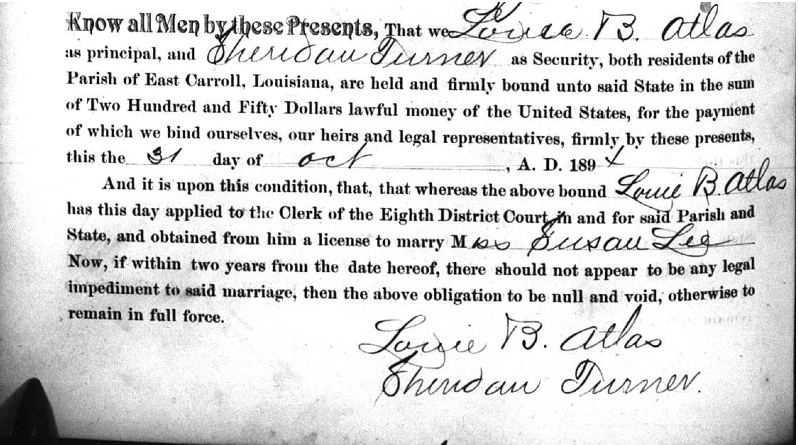 Know all Men by these Presents, That we Louie B. Atlas
as principal, and Sheridan Turner as Security, both residents of the
Parish of East Carroll, Louisiana, are held and firmly bound unto said State in the sum
of Two Hundred and Fifty Dollars lawful money of the United States, for the payment
of which we bind ourselves, our heirs and legal representatives, firmly by these presents,
this the 31 day of Oct, A. D. 189
And it is upon this condition, that, that whereas the above bound Louie B. Atlas
has this day applied to the Clerk of the Eighth District Court, in and for said Parish and
State, and obtained from him a license to marry Miss Susan Lee
Now, if within two years from the date hereof, there should not appear to be any legal
impediment to said marriage, then the above obligation to be null and void, otherwise to
remain in full force.
Louie B. Atlas
Sheridan Turner.